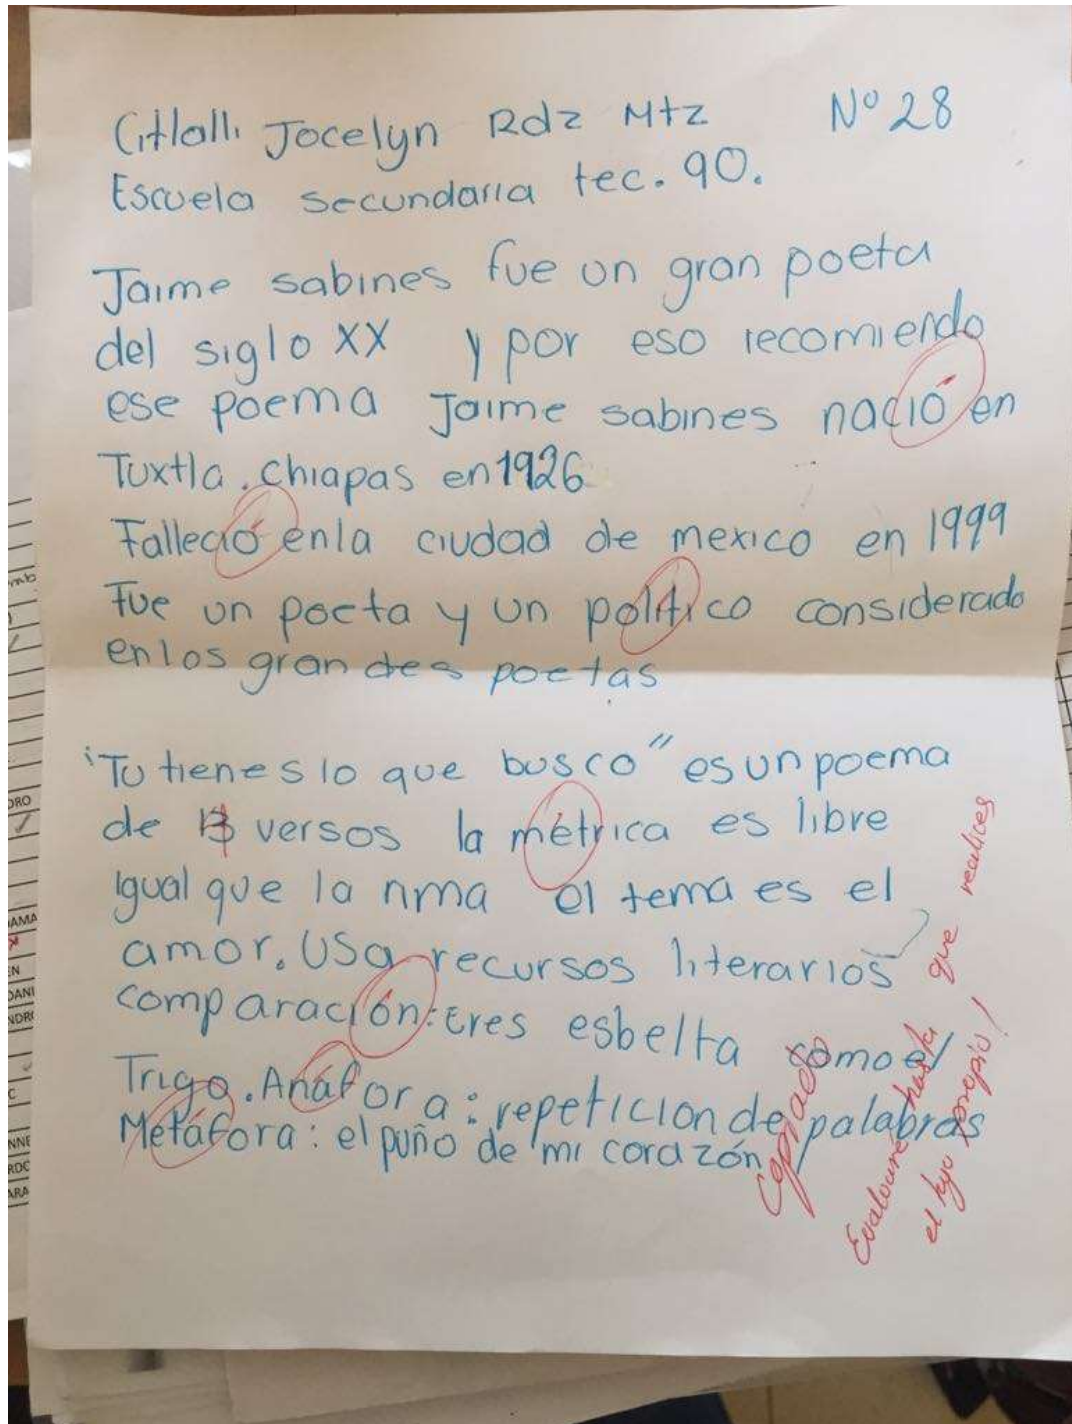 Citlalli Jocelyn Rdz Mtz Nº 28
Escuela secundaria tec. 90.
Jaime sabines fue un gran poeta
del siglo XX y por eso recomiendo
ese poema Jaime sabines nació en
Tuxtla. Chiapas en 1926
Falleció en la ciudad de mexico en 1999
Fue un poeta y un político considerado
en los grandes poetas
"Tu tienes lo que busco" es un poema
de versos la métrica es libre
igual que la rima el tema es el
amor. Usa recursos literarios
comparación: Eres esbelta como el
Trigo. Anáfora: repeticion de palabras
Metáfora: el puño de mi corazón
Copiado
Evaluaré hasta que realices
el tuyo propio!
ORO
AMA
EN
DANI
NDR
C
NNE
RDO
ARA